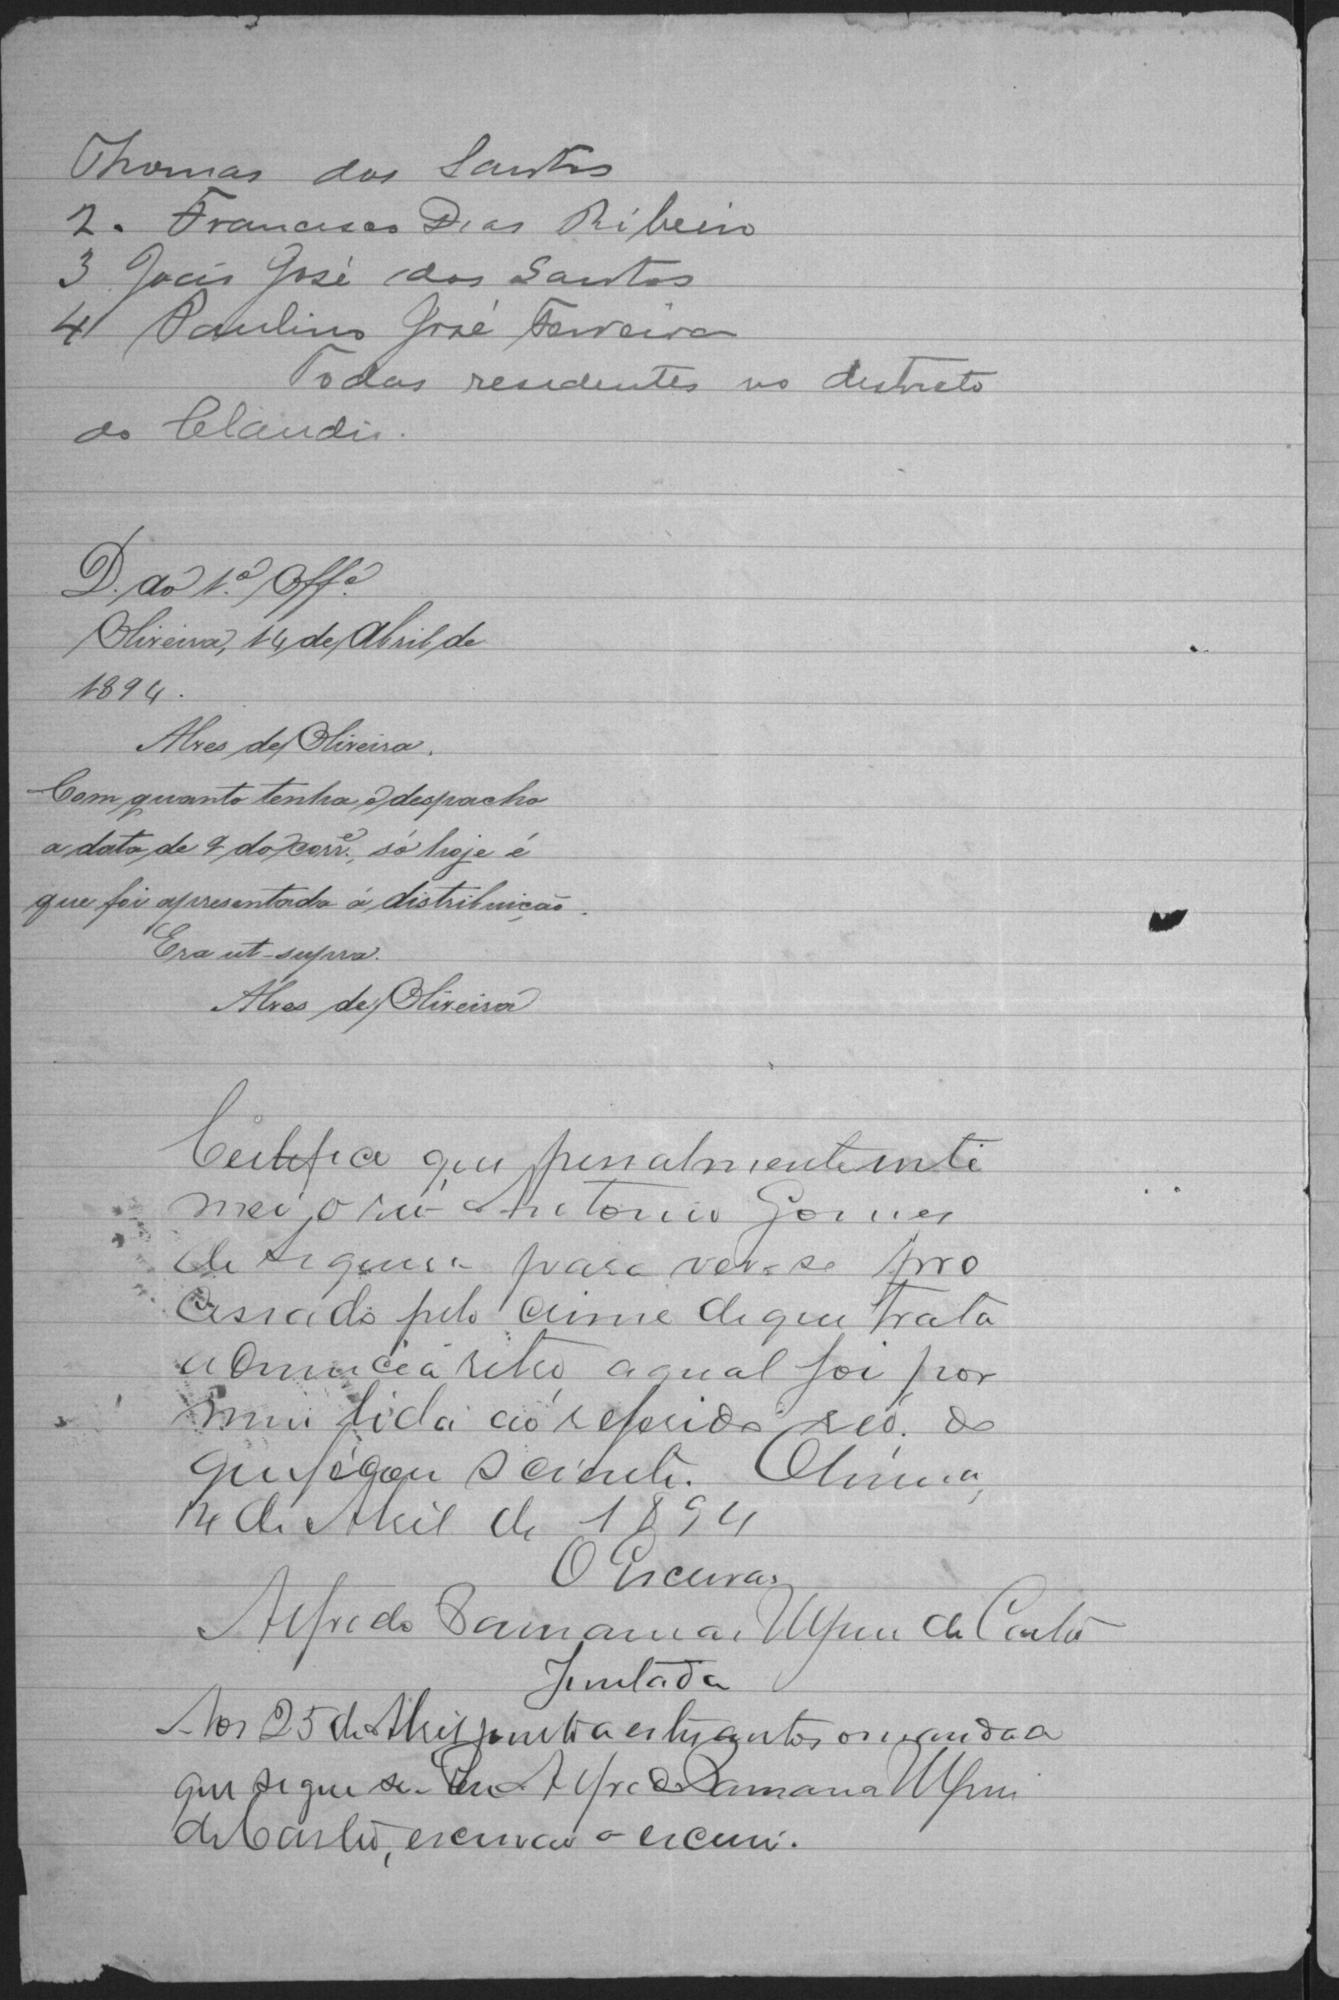 Thomas dos Santos
2. Francisco Dias Ribeiro
3 José dos Santos
4 Paulino José Ferreira
Todos residentes no destricto
do Claudio.
D. ao 1.º Off.º
Oliveira, 14 de Abril de
1894.
Alves de Oliveira.
Com quanto tenha o despacho
a data de 9 do corr.e, só hoje é
que foi apresentada á distribuição.
Era ut-supra.
Alves de Oliveira
Certifico que pessoalmente inti
mei o réo Antonio Gomes
de para ver-se pro
cessado pelo crime de que trata
a denuncia retro a qual foi por
mim lida ao referido réo. do
que ficou sciente. Oliveira,
14 de Abril de 1894
O Escrivão
Alfredo de Castro
Juntada
Aos 25 de Abril junto a estes autos o mandado
que segue se. Eu Alfredo
de Castro, escrivão o escrevi.